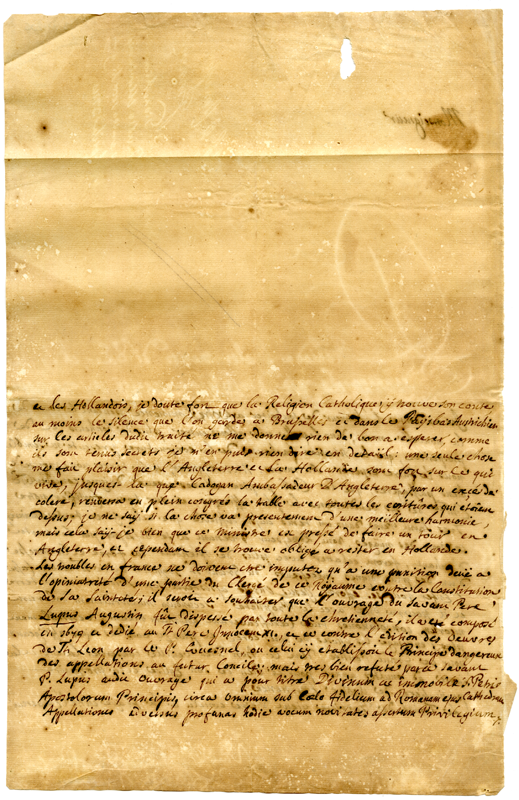 Monseigneur
et les Hollandois, je doute fort que la Religion Catholique y trouve son conte
au moins le silence que l'on garde a Bruxelles et dans le Païsbas Autrichien
sur les articles dudit traité ne me donne rien de bon a esperer, comme
ils sont tenus secrets je n'en puis rien dire en detail: une seule chose
me fait plaisir que l'Angleterre et La Hollande sont fort sur le qui
vive, jusques la que Cadogan Ambassadeur D'Angleterre, par un excé de
colere, renversa en plein congrés la table avec toutes les ecritures qui etoient
dessus, je ne say si la chose va presentement d'une meilleure harmonie,
mais cela say-je bien que ce ministre est pressé de faire un tour en
Angleterre, et cependant il se trouve obligé a rester en Hollande.
Les troubles en france ne doivent etre imputez qu'a une punition deüe a
l'opiniatreté d'une partie du Clergé de ce Royaume contre la Constitution
de Sa Sainteté; il seroit a souhaiter que l'ouvrage du savant Pere
Lupus Augustin fût dispersé par toute la chretienneté, il est composé
en 1649 et dedié au St Pere Innocent XI. et ce contre l'edition des Oeuvres
de St Leon par le P. Quesnel, ou celui cy etablissoit le Principe dangereux
des appellations au futur Concile: mais tres bien refuté par ce savant
P. Lupus audit ouvrage qui a pour titre Divinum ac immobile S. Petri
Apostolorum Principis, circa omnium sub Cœlo fidelium ad Romanam ejus Cathedram
Appellationes adversus profanas hodie vocum novitates assertum Privilegium